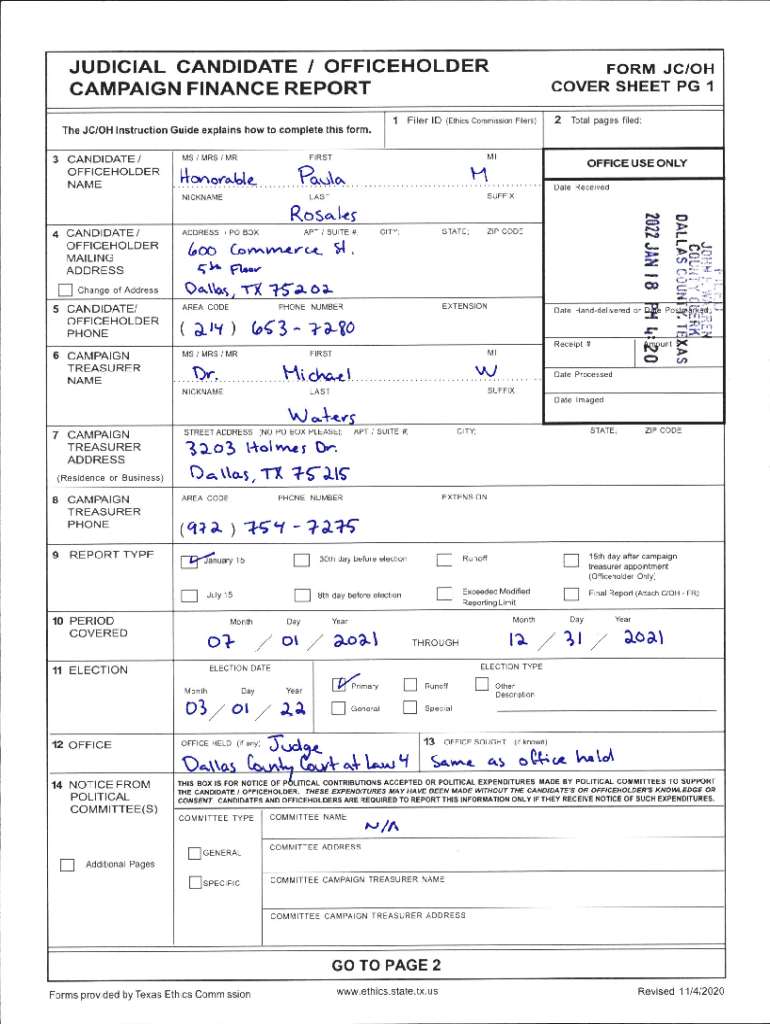 JUDICIAL CANDIDATE / OFFICEHOLDER
CAMPAIGN FINANCE REPORT
FORM JC/OH
COVER SHEET PG 1
The JC/OH Instruction Guide explains how to complete this form.
1 Filer ID (Ethics Commission Filers)
2 Total pages filed:
3 CANDIDATE / OFFICEHOLDER NAME
MS / MRS / MR FIRST MI
Honorable Paula M
NICKNAME LAST SUFFIX
Rosales
OFFICE USE ONLY
Date Received
FILED
JOHN F. WARREN
COUNTY CLERK
DALLAS COUNTY, TEXAS
2022 JAN 18 PM 4:20
4 CANDIDATE / OFFICEHOLDER MAILING ADDRESS
Change of Address
ADDRESS / PO BOX APT / SUITE #; CITY; STATE; ZIP CODE
600 Commerce St.
5th Floor
Dallas, TX 75202
5 CANDIDATE/ OFFICEHOLDER PHONE
AREA CODE PHONE NUMBER EXTENSION
(214) 653-7280
Date Hand-delivered or Date Postmarked
Receipt # Amount $
Date Processed
Date Imaged
6 CAMPAIGN TREASURER NAME
MS / MRS / MR FIRST MI
Dr. Michael W
NICKNAME LAST SUFFIX
Waters
7 CAMPAIGN TREASURER ADDRESS
(Residence or Business)
STREET ADDRESS (NO PO BOX PLEASE); APT / SUITE #; CITY; STATE; ZIP CODE
3203 Holmes Dr.
Dallas, TX 75215
8 CAMPAIGN TREASURER PHONE
AREA CODE PHONE NUMBER EXTENSION
(972) 754-7275
9 REPORT TYPE
January 15
30th day before election
Runoff
15th day after campaign treasurer appointment (Officeholder Only)
July 15
8th day before election
Exceeded Modified Reporting Limit
Final Report (Attach C/OH - FR)
10 PERIOD COVERED
Month Day Year
07 / 01 / 2021
THROUGH
Month Day Year
12 / 31 / 2021
11 ELECTION
ELECTION DATE
Month Day Year
03 / 01 / 22
ELECTION TYPE
Primary
Runoff
Other Description
General
Special
12 OFFICE
OFFICE HELD (if any)
Judge
Dallas County Court at Law 4
13 OFFICE SOUGHT (if known)
Same as office held
14 NOTICE FROM POLITICAL COMMITTEE(S)
Additional Pages
THIS BOX IS FOR NOTICE OF POLITICAL CONTRIBUTIONS ACCEPTED OR POLITICAL EXPENDITURES MADE BY POLITICAL COMMITTEES TO SUPPORT
THE CANDIDATE / OFFICEHOLDER. THESE EXPENDITURES MAY HAVE BEEN MADE WITHOUT THE CANDIDATE'S OR OFFICEHOLDER'S KNOWLEDGE OR
CONSENT. CANDIDATES AND OFFICEHOLDERS ARE REQUIRED TO REPORT THIS INFORMATION ONLY IF THEY RECEIVE NOTICE OF SUCH EXPENDITURES.
COMMITTEE TYPE
GENERAL
SPECIFIC
COMMITTEE NAME
N/A
COMMITTEE ADDRESS
COMMITTEE CAMPAIGN TREASURER NAME
COMMITTEE CAMPAIGN TREASURER ADDRESS
GO TO PAGE 2
Forms provided by Texas Ethics Commission
www.ethics.state.tx.us
Revised 11/4/2020